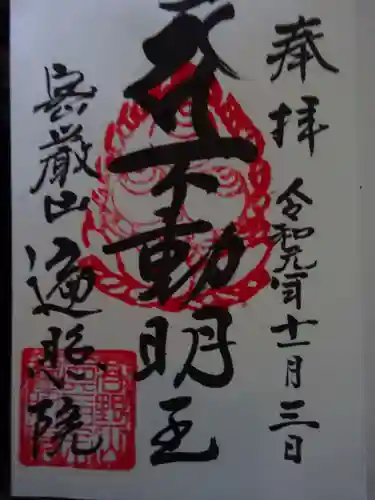 奉拝
令和元年十一月三日
不動明王
密厳山
遍照院